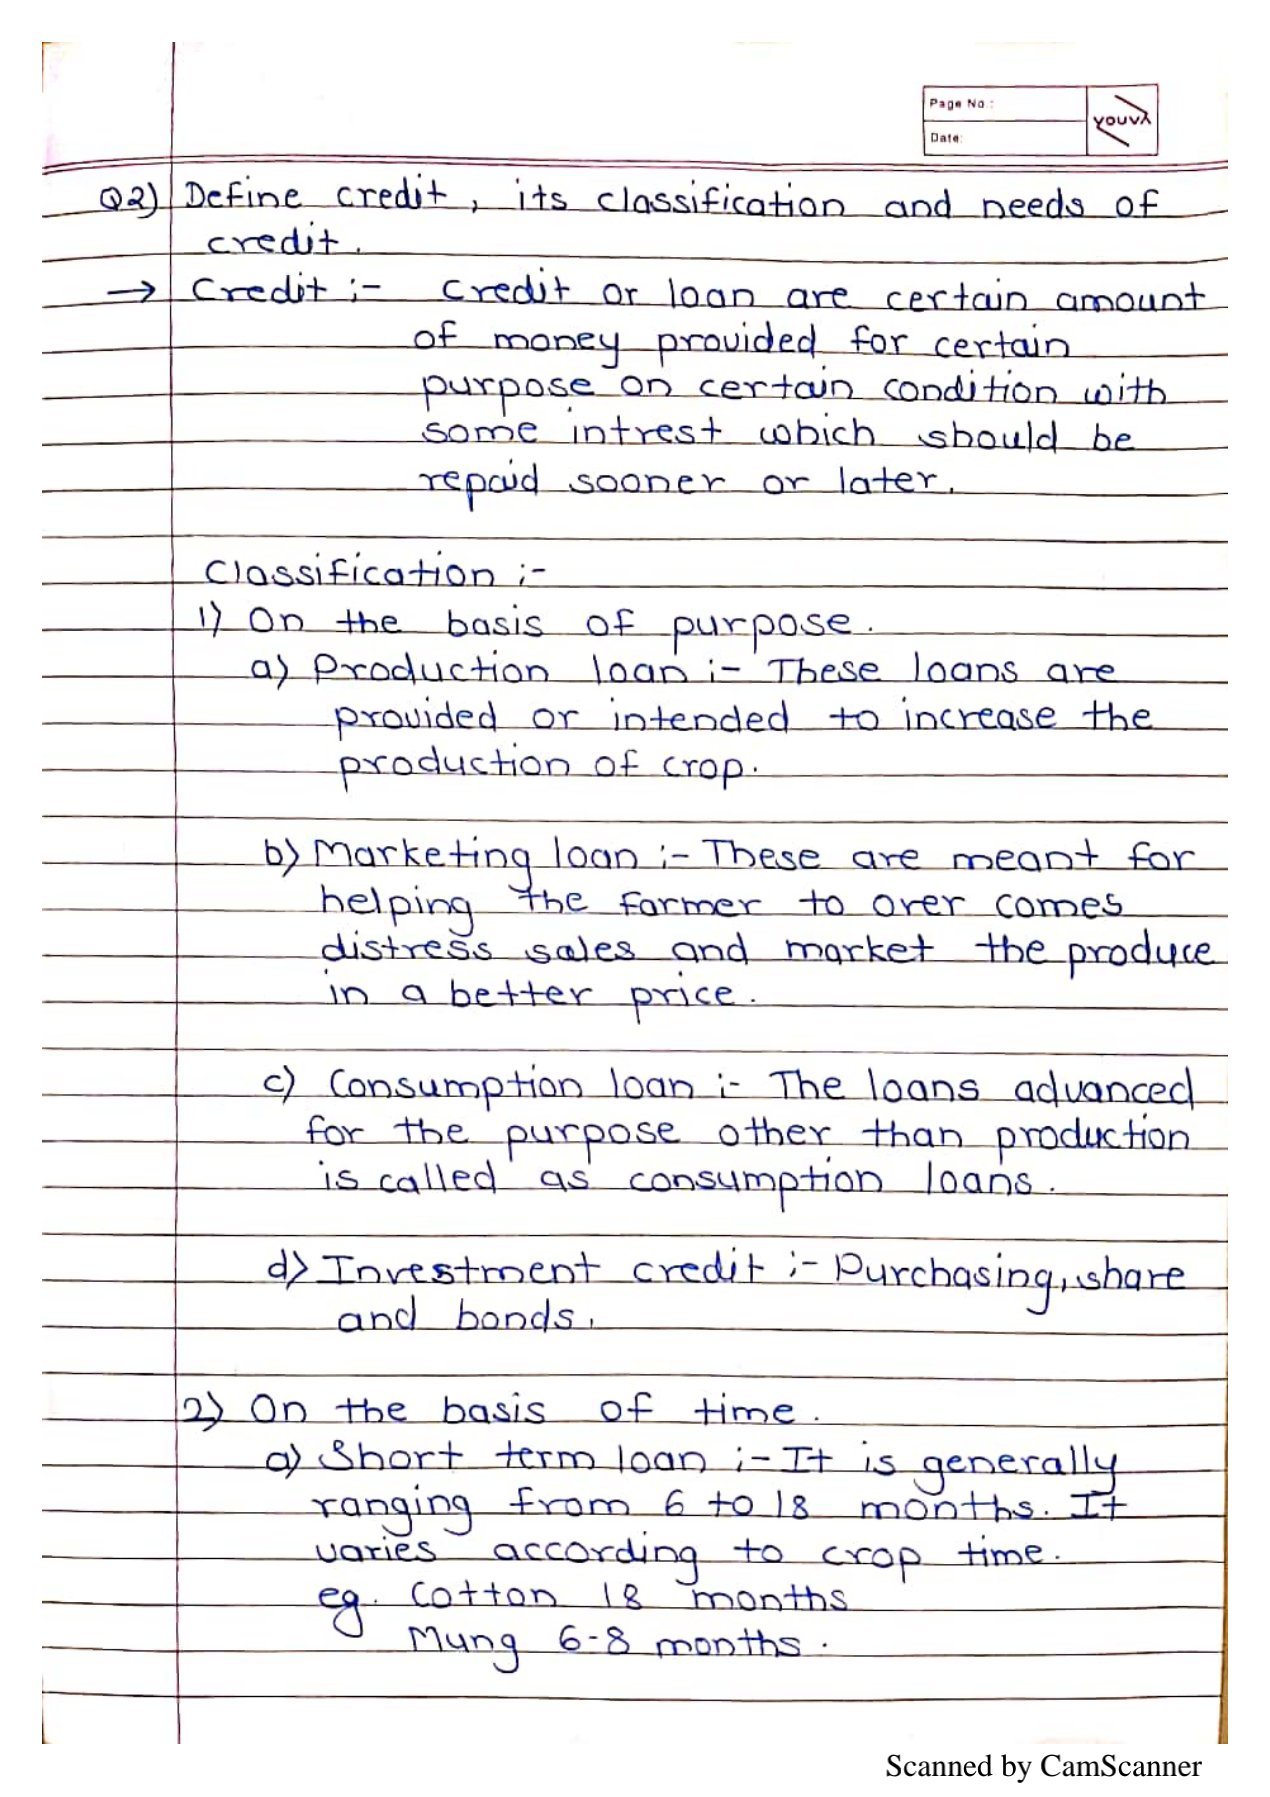 Page No.:
Date:
YOUVA
Q2) Define credit, its classification and needs of
credit.
→ Credit :- credit or loan are certain amount
of money provided for certain
purpose on certain condition with
some intrest which should be
repaid sooner or later.
Classification :-
1) On the basis of purpose.
a) Production loan :- These loans are
provided or intended to increase the
production of crop.
b) Marketing loan :- These are meant for
helping the farmer to over comes
distress sales and market the produce
in a better price.
c) Consumption loan :- The loans advanced
for the purpose other than production
is called as consumption loans.
d) Investment credit :- Purchasing, share
and bonds.
2) On the basis of time.
a) Short term loan :- It is generally
ranging from 6 to 18 months. It
varies according to crop time.
eg. Cotton 18 months
Mung 6-8 months.
Scanned by CamScanner